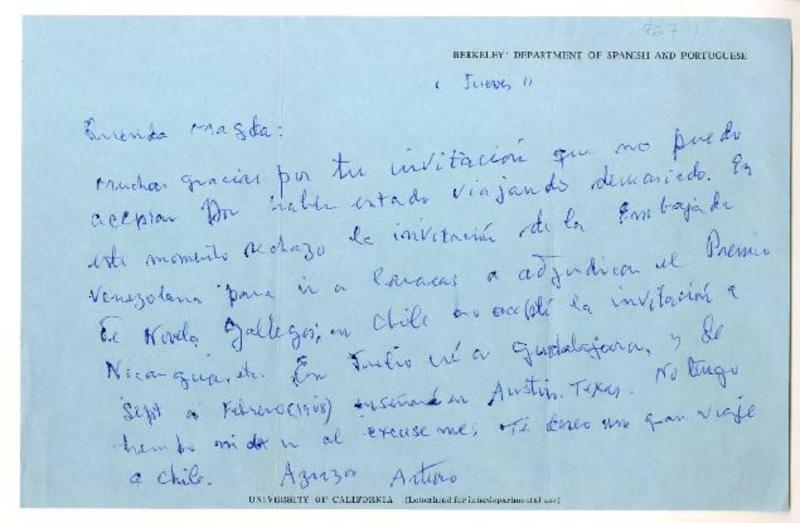 967
BERKELEY: DEPARTMENT OF SPANISH AND PORTUGUESE
"Jueves"
Querida Magda:
muchas gracias por tu invitación que no puedo
aceptar por haber estado viajando demasiado. En
este momento rechazo la invitación de la Embajada
Venezolana para ir a Caracas a adjudicar el Premio
de Novela Gallegos; en Chile no acepté la invitación a
Nicaragua, etc. En Julio iré a Guadalajara, y de
Sept a Febrero (1968) enseñaré en Austin, Texas. No tengo
tiempo ni de ir al excuse me. Te deseo un gran viaje
a Chile. Arturo
UNIVERSITY OF CALIFORNIA (Letterhead for interdepartmental use)